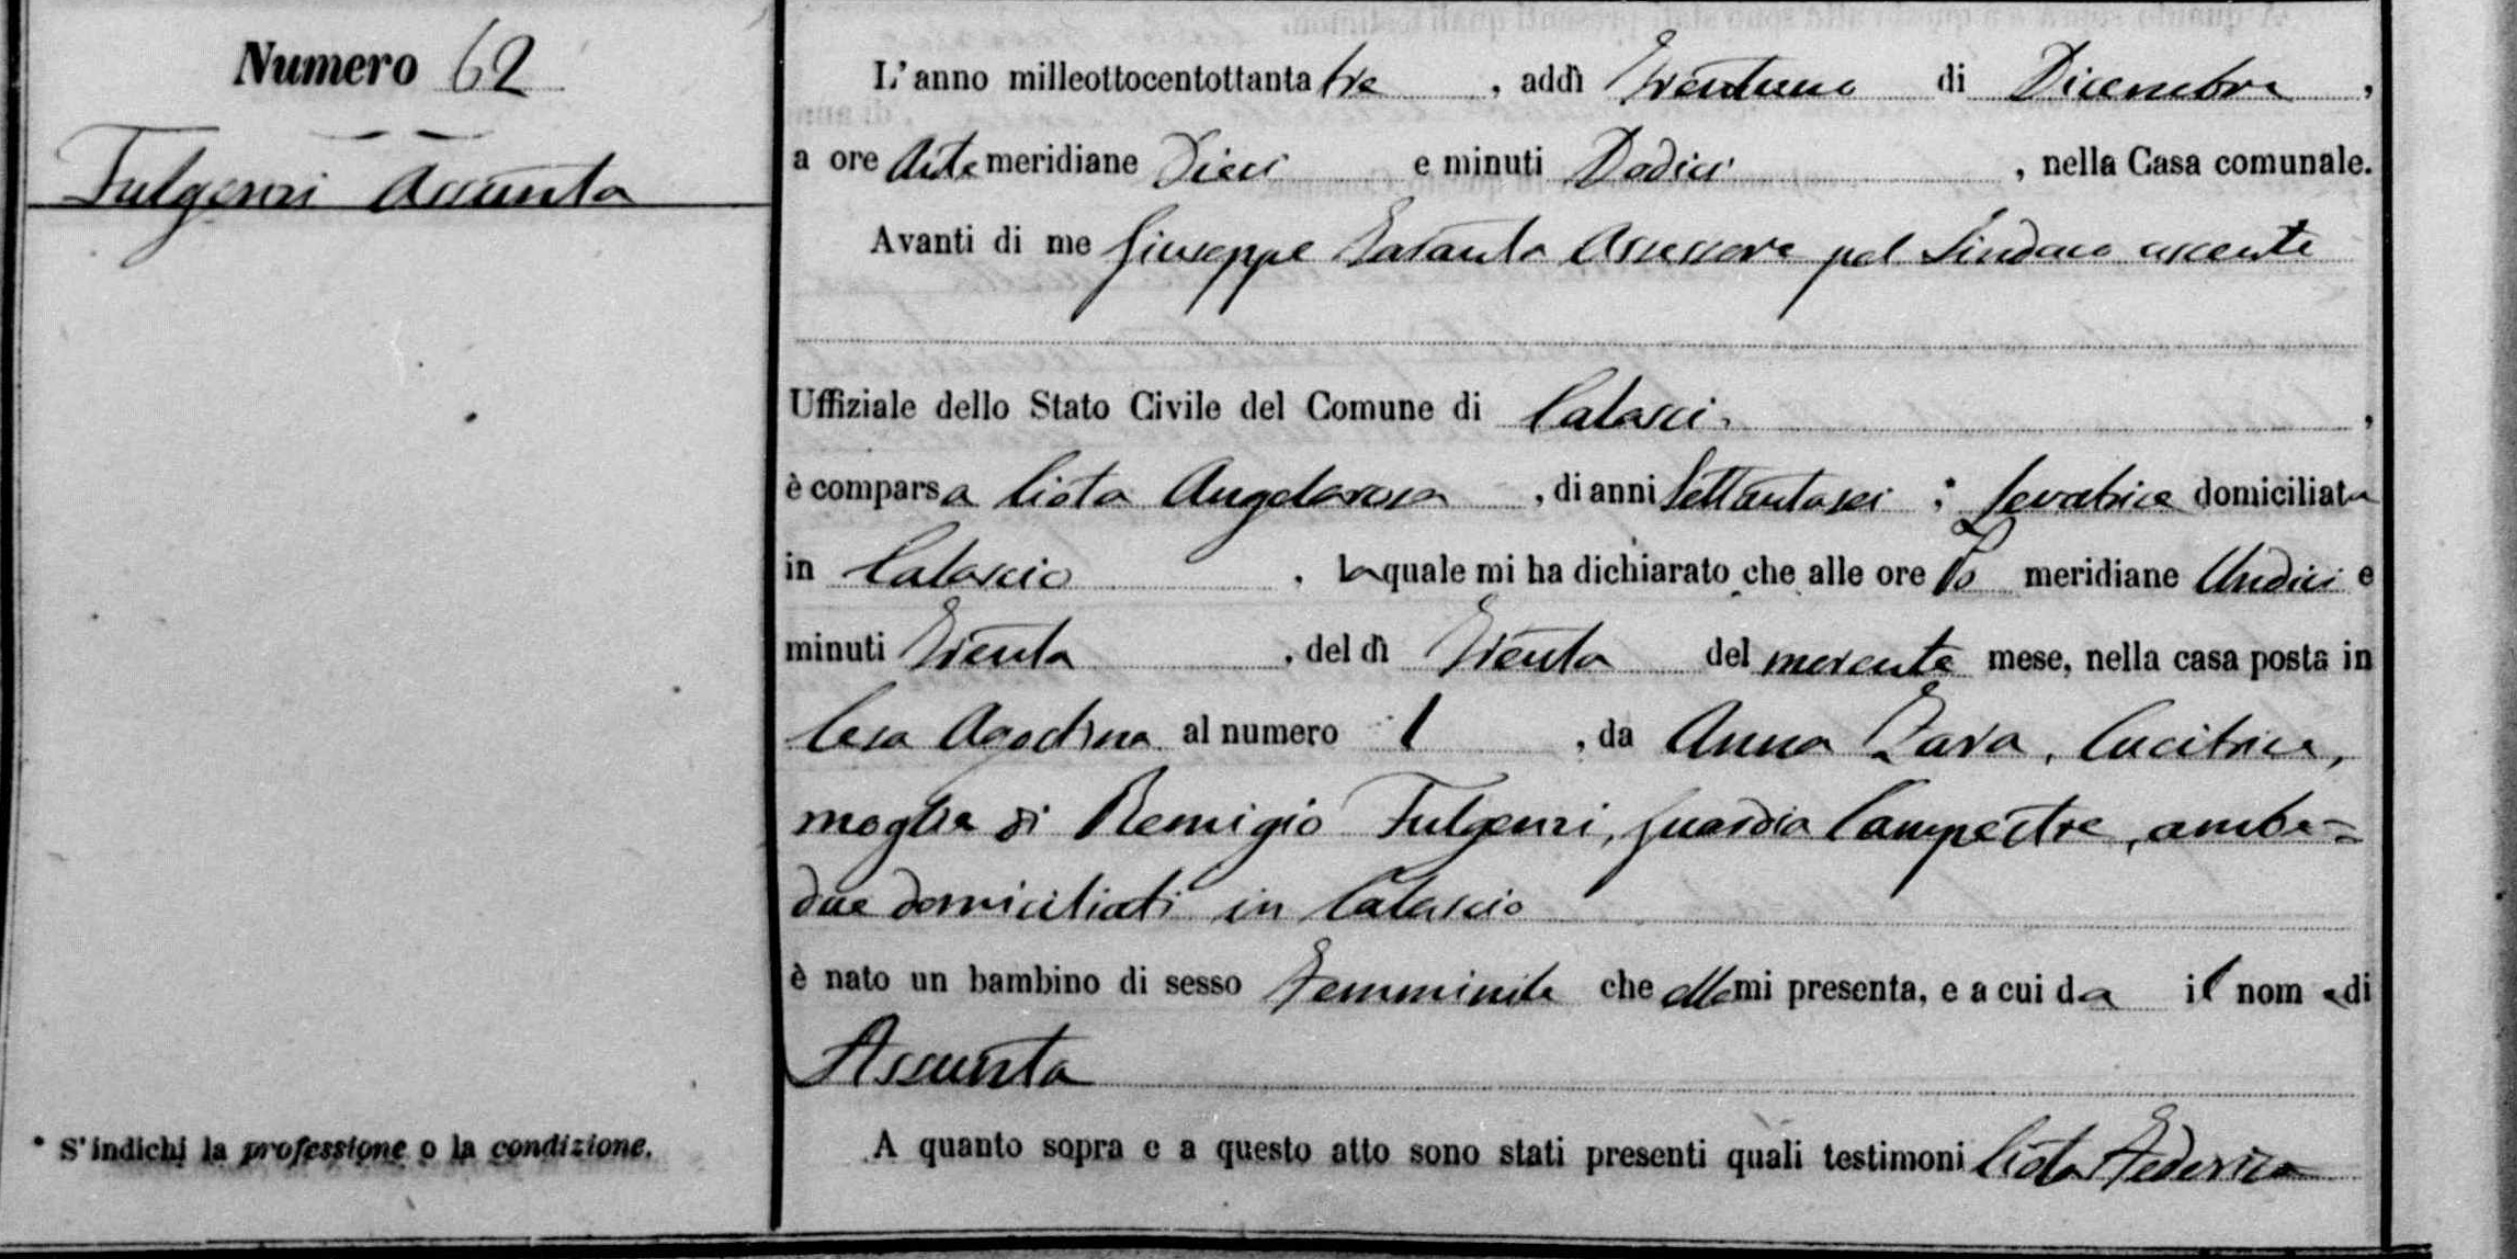 Numero 62
Fulgenzi Assunta
L'anno milleottocentottanta tre, addì trentuno di Dicembre,
a ore Ante meridiane Dieci e minuti Dodici, nella Casa comunale.
Avanti di me Giuseppe Taranta Assessore pel Sindaco uscente
Uffiziale dello Stato Civile del Comune di Calasci.,
è comparsa Ciota Angelarosa, di anni Settantasei ;* levatrice domiciliata
in Calascio, la quale mi ha dichiarato che alle ore Po meridiane Undici e
minuti Trenta, del dì Trenta del morente mese, nella casa posta in
al numero 1, da Anna Zara, Cucitrice,
moglie di Remigio Fulgenzi, Guardia Campestre, ambe=
due domiciliati in Calascio
è nato un bambino di sesso Femminile che ella mi presenta, e a cui da il nome di
Assunta
A quanto sopra e a questo atto sono stati presenti quali testimoni Ciota Federico
* S'indichi la professione o la condizione.